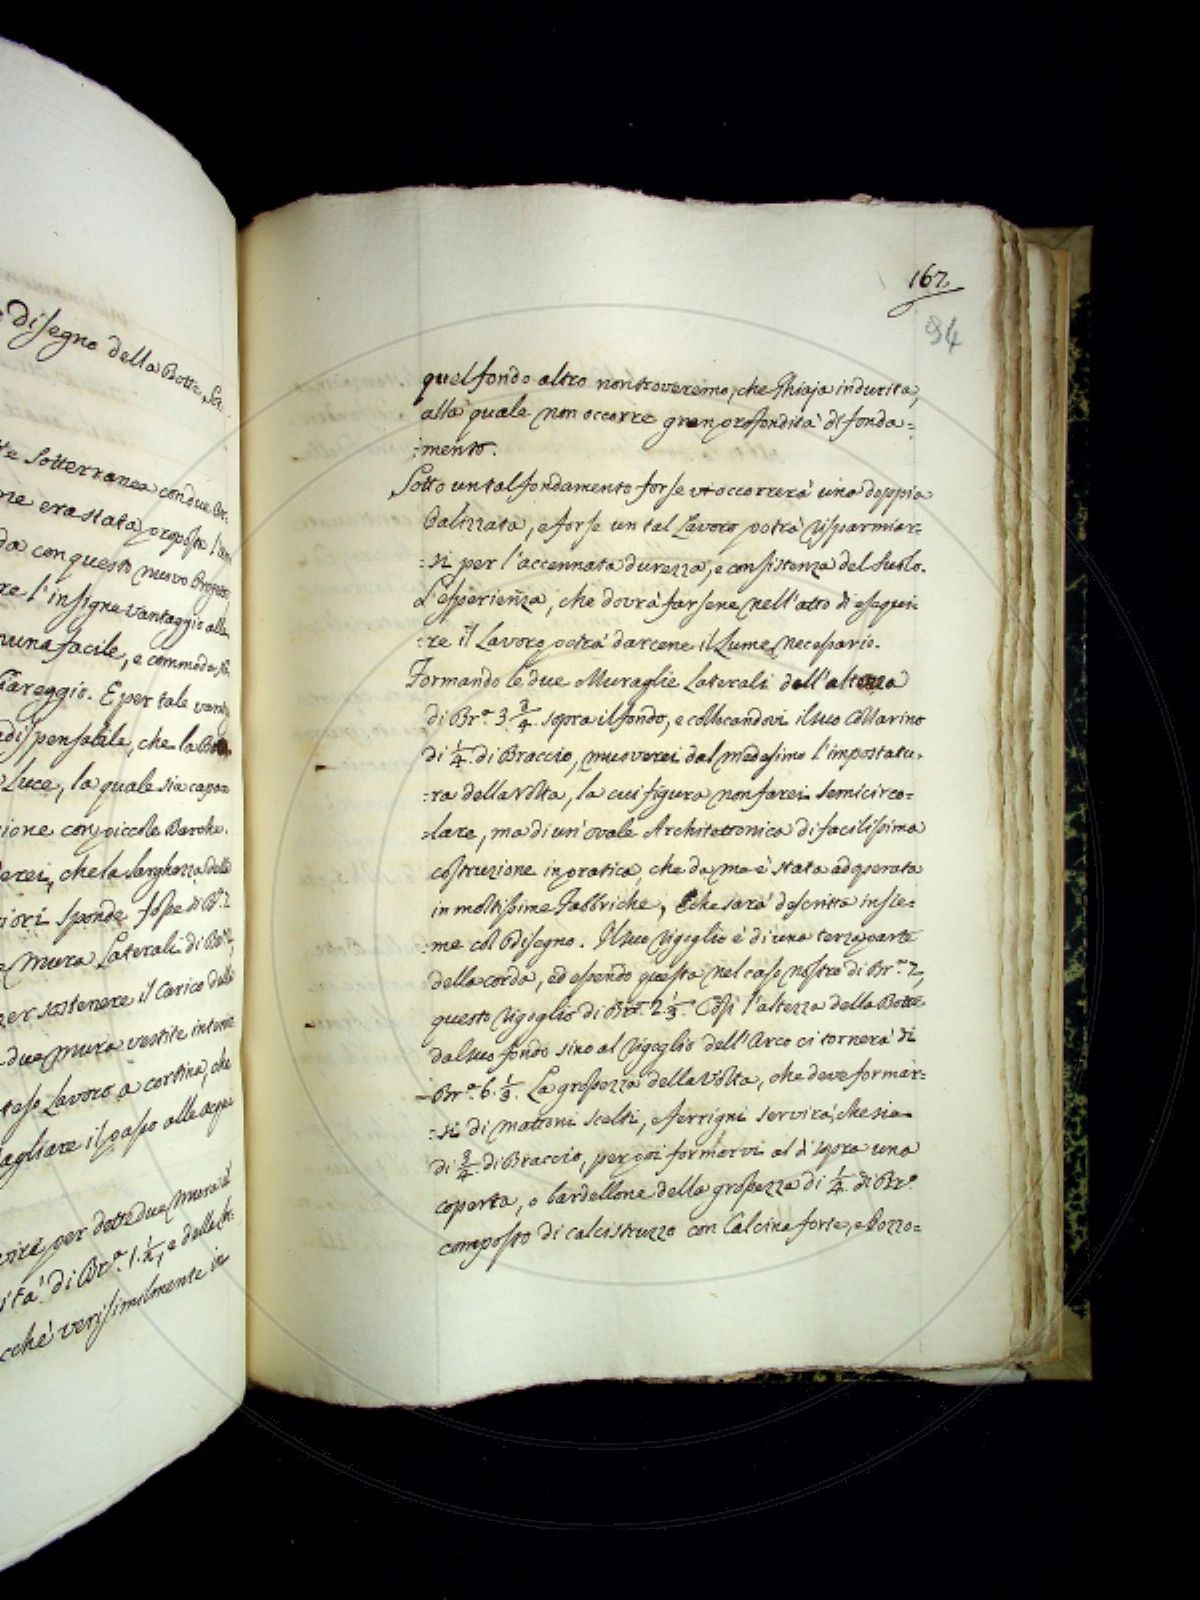 e Disegno della Botte Sot
te Sotterranea con due Br:
ne era stata proposta l'an
da con questo nuovo Proget
re l'insigne vantaggio alla
una facile, e commoda
Viareggio. E per tale vant
indispensabile, che la Bot
Luce, la quale sia capac
ione con piccole Barche.
erei, che la larghezza delle
iori sponde fosse di Br. 2
e mura Laterali di Br. 2,
per sostenere il carico della
due mura vestite interna
teso Lavoro à cortina, che
agliare il passo alle acque
vire per dette due mura à
ità di Br.ª 1.½, e della
cche verisimilmente in
162
94
quel fondo altro non troveremo, che Ghiaja indurita,
alla quale non occorre gran profondità di fonda=
:mento.
Sotto un tal fondamento forse vi occorrerà una doppia
Palizzata, e forse un tal Lavoro potrà risparmiar:
:si per l'accennata durezza, e consistenza del Suolo.
L'esperienza, che dovrà farsene nell'atto di esegui:
:re il Lavoro potrà darcene il Lume necessario.
Formando le due Muraglie Laterali dell'altezza
di Br.ª 3 ¾ sopra il fondo, e collocandovi il suo Collarino
di ¼ di Braccio, muoverei dal medesimo l'impostatu:
:ra della Volta, la cui figura non farei semicirco=
:lare, ma di un'ovale Architettonica di facilissima
costruzione in pratica, che da me è stata adoperata
in moltissime Fabbriche, e che sarà descritta insie=
:me col Disegno. Il suo rigoglio è di una terza parte
della corda, ed essendo questa nel caso nostro di Br.ª 7,
questo rigoglio di Br.ª 2 ⅓. Così l'altezza della Botte
dal suo fondo sino al rigoglio dell'Arco ci tornerà di
Br.ª 6. ⅓. La grossezza della Volta, che deve formar=
:si di mattoni scelti, e ferrigni servirà, che sia
di ¾ di Braccio, per poi formarvi al di sopra una
coperta, o lardellone della grossezza di ¼ di Br.ª
composto di calcistruzzo con Calcina forte, e Pozzo=